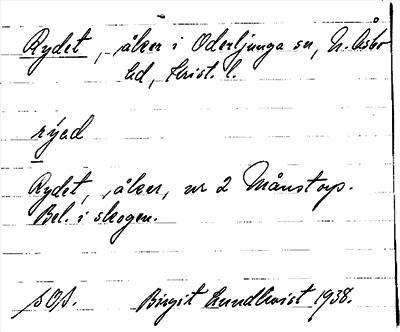 Rydet, åker i Oderljunga sn, N. Åsbo
hd, Krist. l.
rýed
Rydet, åker, nr 2 Månstorp.
Bel. i skogen.
sOA. Birgit Lundkvist 1938.